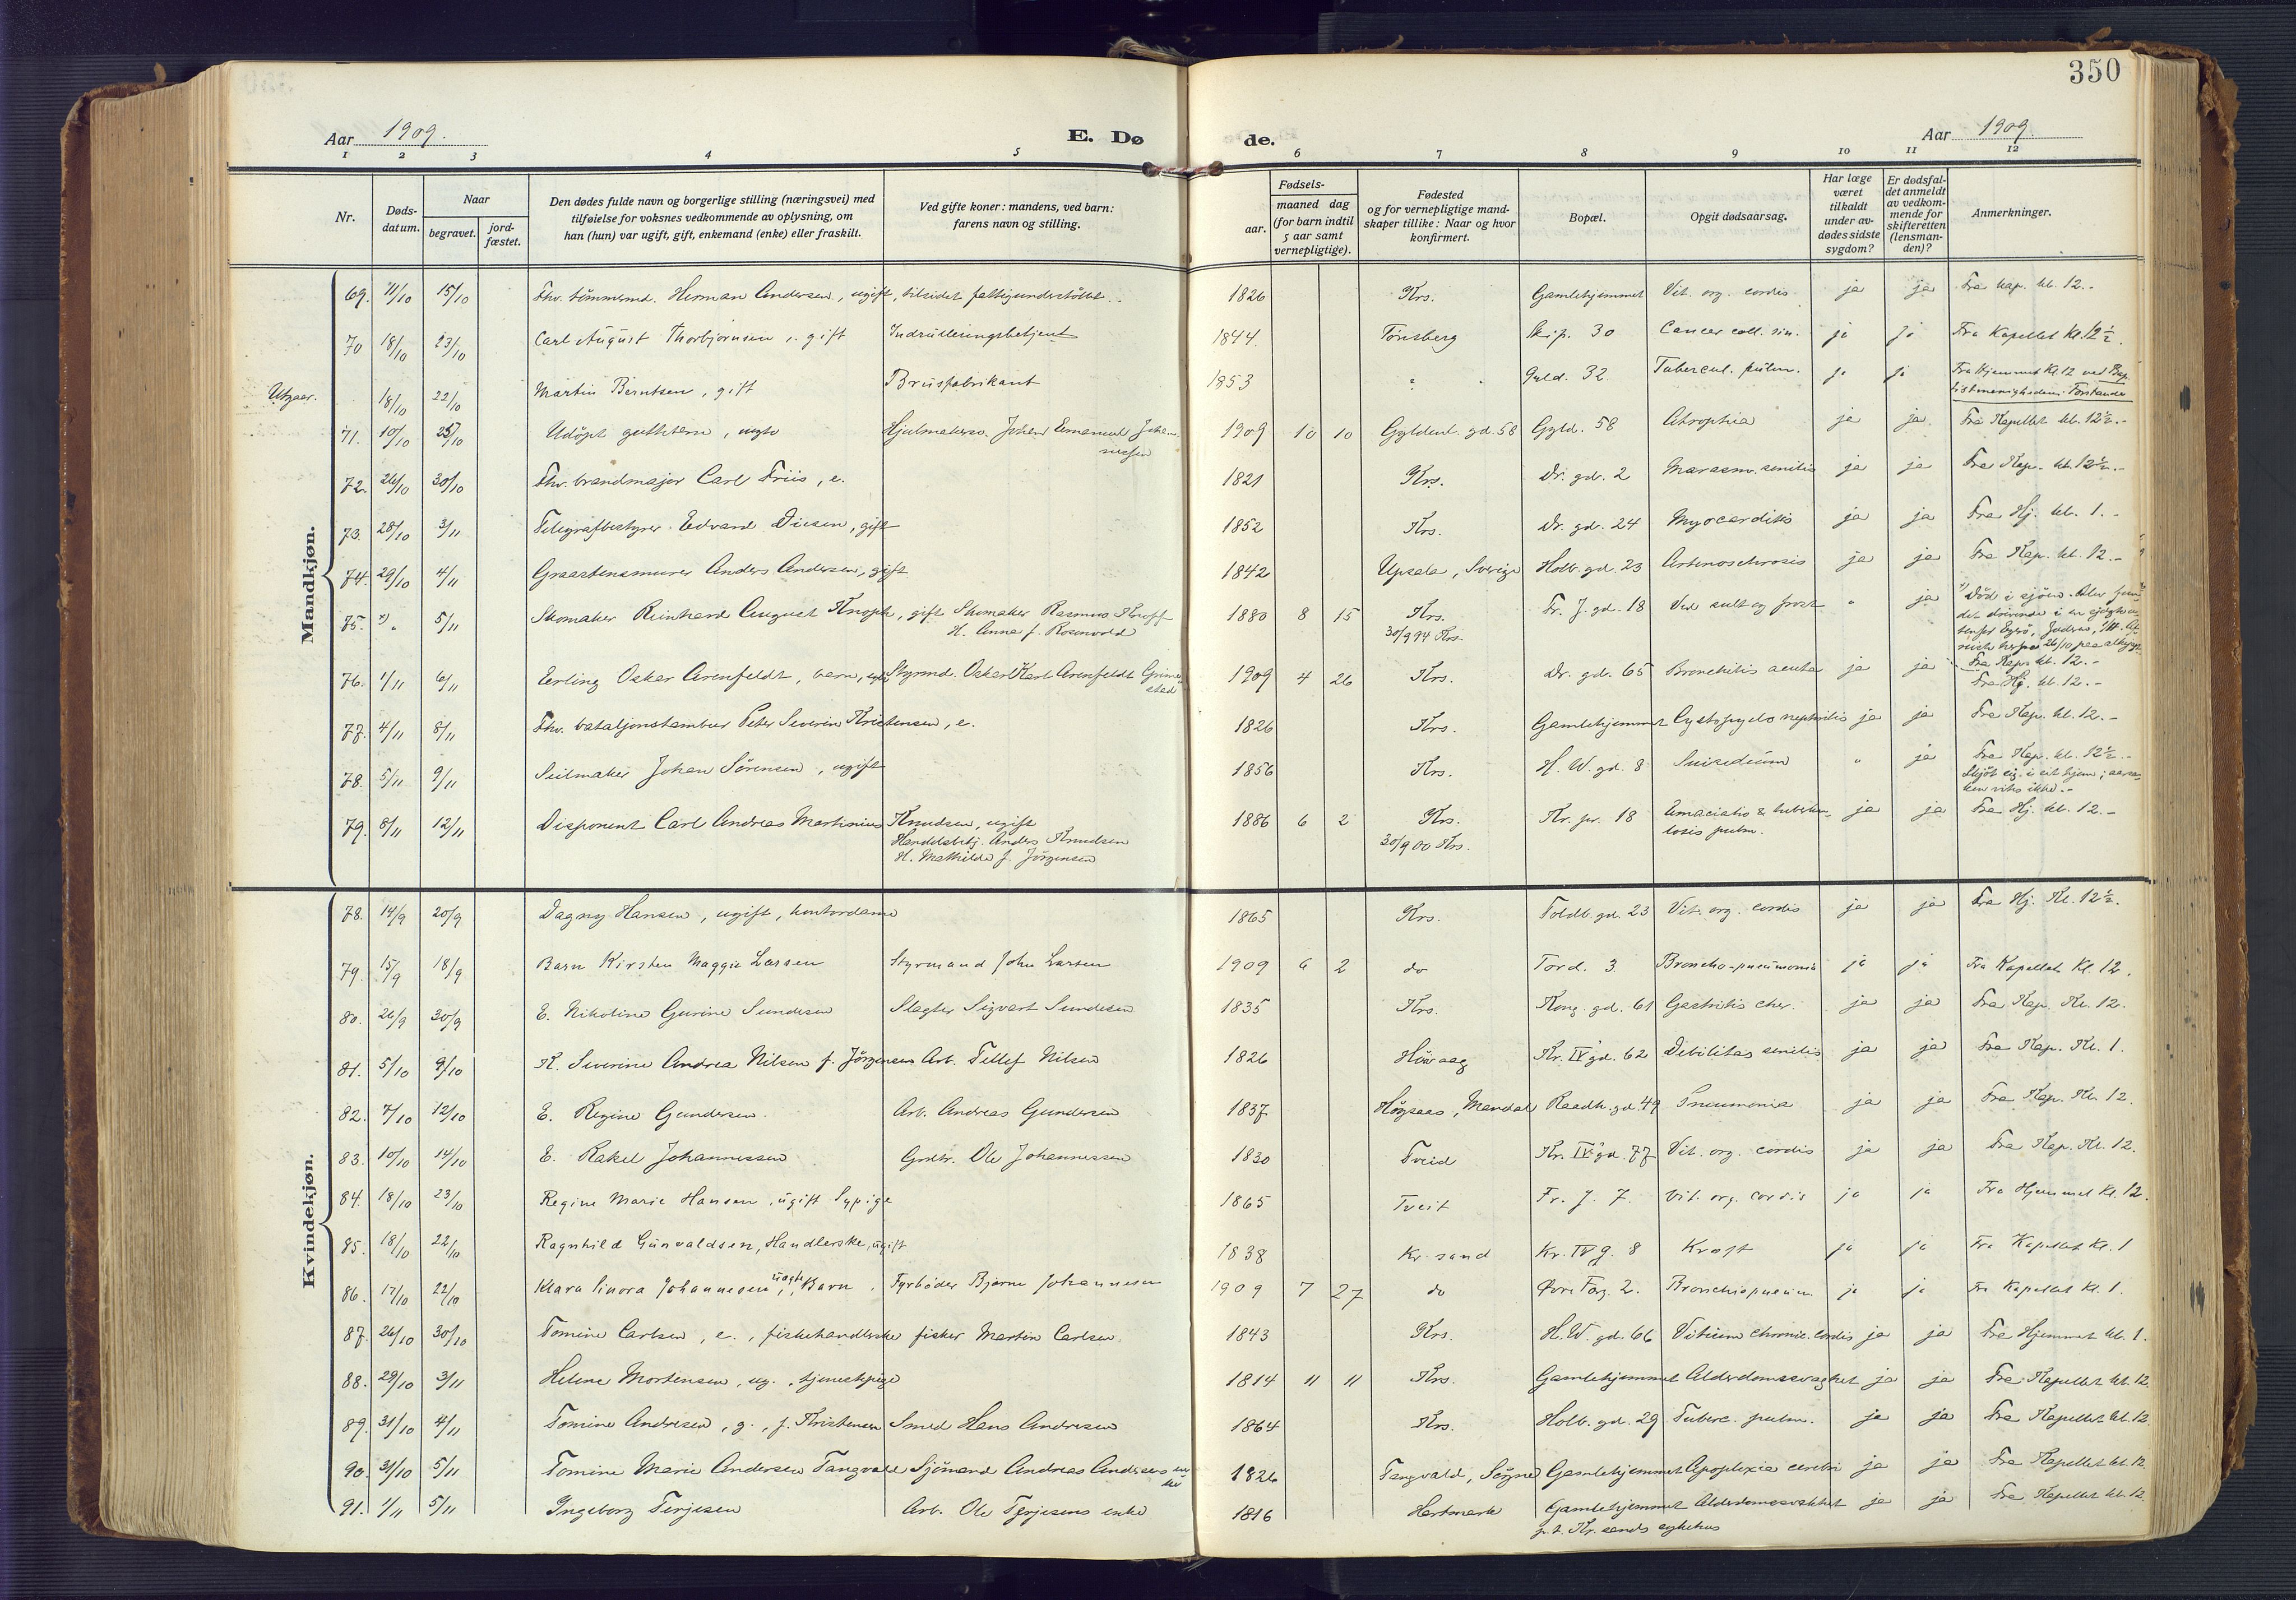 350
Aar 1909. E. Dø de. Aar 1909.
1 2 3 4 5 6 7 8 9 10 11 12
Nr. Døds-datum. Naar begravet. jord-fæstet. Den dødes fulde navn og borgerlige stilling (næringsvei) med tilføielse for voksnes vedkommende av oplysning, om han (hun) var ugift, gift, enkemand (enke) eller fraskilt. Ved gifte koner: mandens, ved barn: farens navn og stilling. Fødsels- aar. maaned dag (for barn indtil 5 aar samt vernepligtige). Fødested og for vernepligtige mand-skaper tillike: Naar og hvor konfirmert. Bopæl. Opgit dødsaarsag. Har læge været tilkaldt under av-dødes sidste sygdom? Er dødsfal-det anmeldt av vedkom-mende for skifteretten (lensman-den)? Anmerkninger.
Mandkjøn.
69. 11/10 15/10 Fhv. tømmermd. Herman Andersen, ugift, tilsidst fattigunderstøttet. 1826 Krs. Gamlehjemmet Vit. org. cordis ja ja Fra kap. kl. 12.-
70 18/10 23/10 Carl August Thorbjørnsen, gift Indrulleringsbetjent 1844. Tønsberg Skip. 30 Cancer coll. sin. ja ja Fra Kapellet Kl. 12½.
Utgaar. 18/10 22/10 Martin Berntsen, gift Brusfabrikant 1853 " " Gyld. 32 Tubercul. pulm. ja ja Fra Hjemmet Kl. 12 ved Bap-
tistmenighedens Forstander
71. 10/10 25/10 Udøpt guttebarn, egte Hjulmakersv. Johan Emanuel Johan-
nessen 1909 10 10 Gyldenl. gd. 58 Gyld. 58 Atrophia ja ja Fra Kapellet kl. 12½.-
72. 26/10 30/10 Fhv. brandmajor Carl Friis, e. 1821 Krs. Dr. gd. 2 Marasm. senilis ja ja Fra Kap. kl. 12½.-
73. 28/10 3/11 Telegrafbestyrer Edvard Diesen, gift 1852 Krs. Dr. gd. 24 Myocarditis ja ja Fra Hj. kl. 1.-
74. 29/10 4/11 Graastensmurer Anders Andersen, gift 1842 Upsala, Sverige Holb. gd. 23 ja ja Fra Kap. kl. 12.-
75. 5/11 Skomaker Reinhard August Knoph, gift Skomaker Rasmus Knoff
H. Anna f. Rosenvold 1880 8 15 Krs.
30/9 94 Krs. Fr. J. gd. 18 Ved sult og frost " ja Død i sjøen. Blev fun-
det drivende i en sjøgte
Fra Kap. kl. 12.-
76. 1/11 6/11 Erling Oskar Arenfeldt, barn, egte Styrmd. Oskar Karl Arenfeldt Grim-
stad 1909 4 26 Krs. Dr. gd. 65 Bronchitis acuta ja ja Fra Hj. kl. 12.-
77. 4/11 8/11 Fhv. bataljonstambur Peter Severin Kristensen, e. 1826 Krs. Gamlehjemmet Cystopyelo nephritis ja ja Fra Kap. kl. 12.-
78. 5/11 9/11 Seilmaker Johan Sørensen, ugift 1856 Krs. H. W. gd. 8 Suicidium " ja Fra Kap. kl. 12½.-
Skjøt sig i sit hjem; aarsa-
ken vites ikke.-
79. 8/11 12/11 Disponent Carl Andreas Martinius Knudsen, ugift
Handelsbetj. Anders Knudsen
H. Mathilde f. Jørgensen 1886 6 2 Krs.
30/9 00 Krs. Kr. pr. 18 Emaciatio & tuberku-
losis pulm. ja ja Fra Hj. kl. 12.-
Kvindekjøn.
78. 14/9 20/9 Dagny Hansen, ugift, kontordame 1865 Krs. Toldb. gd. 23 Vit. org. cordis ja ja Fra Hj. Kl. 12½.
79. 15/9 18/9 Barn Kirsten Maggie Larsen Styrmand John Larsen 1909 6 2 do Tord. 3. Broncho-pneumonia ja ja Fra Kapellet Kl. 12.
80. 26/9 30/9 E. Nikoline Gurine Sundesen Slagter Sigvart Sundesen 1835 Krs. Kong. gd. 61 Gastritis chr. ja ja Fra Kap. Kl. 12.
81. 5/10 9/10 K. Severine Andrea Nilsen f. Jørgensen Arb. Tellef Nilsen 1826 Høvaag Kr. IV gd. 62 Debilitas senilis ja ja Fra Kap. Kl. 1.
82. 7/10 12/10 E. Regine Gundersen Arb. Andreas Gundersen 1837 Høgsaas, Mandal Raadh. gd. 49 Pneumonia ja ja Fra Kap. Kl. 12.
83. 10/10 14/10 E. Rakel Johannessen Grdbr. Ole Johannessen 1830 Tveid Kr. IV gd. 77 Vit. org. cordis ja ja Fra Kap. Kl. 12.
84. 18/10 23/10 Regine Marie Hansen, ugift Sypige 1865 Tveit Fr. J. 7. Vit. org. cordis ja ja Fra Hjemmet Kl. 12.
85. 18/10 22/10 Ragnhild Gunvaldsen, Handlerske, ugift 1838 Kr. sand Kr. IV g. 8 Kræft ja ja Fra Kapellet Kl. 1
86. 17/10 22/10 Klara Linora Johannesen, uægte Barn. Fyrbøder Bjarne Johannesen 1909 7 27 do Øvre Torg. 2. Bronchiopneum. ja ja Fra Kapellet Kl. 1.
87. 26/10 30/10 Tomine Carlsen, e., fiskehandlerske fisker Martin Carlsen 1843 Krs. H. W. gd. 66 Vitium chronic. cordis ja ja Fra Hjemmet kl. 1.
88. 29/10 3/11 Helene Mortensen, ug., tjenestepige 1814 " " Krs. Gamlehjemmet Alderdomssvaghet ja ja Fra Kapellet kl. 12.
89. 31/10 4/11 Tomine Andresen, g., f. Kristensen Smed Hans Andresen 1864 Krs. Holb. gd. 29 Tuberc. pulm. ja ja Fra Kapellet kl. 12.
90. 31/10 5/11 Tomine Marie Andersen Tangvald Sjømand Andreas Andersens en-
ke 1826 Tangvald, Søgne Gamlehjemmet Apoplexia cerebri ja ja Fra Kapellet kl. 12.
91. 1/11 5/11 Ingeborg Terjesen Arb. Ole Terjesens enke 1816 Hartmark Gamlehjemmet Alderdomssvakhet ja ja Fra Kapellet kl. 12.
p. t. Kr. sands sykehus